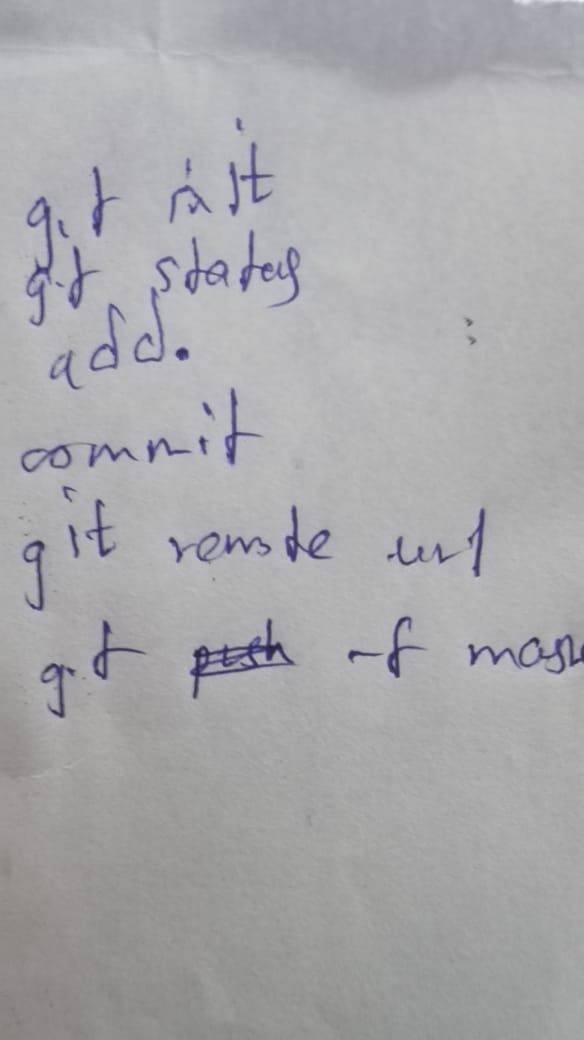 git init
git status
add.
commit
git remote url
git -f